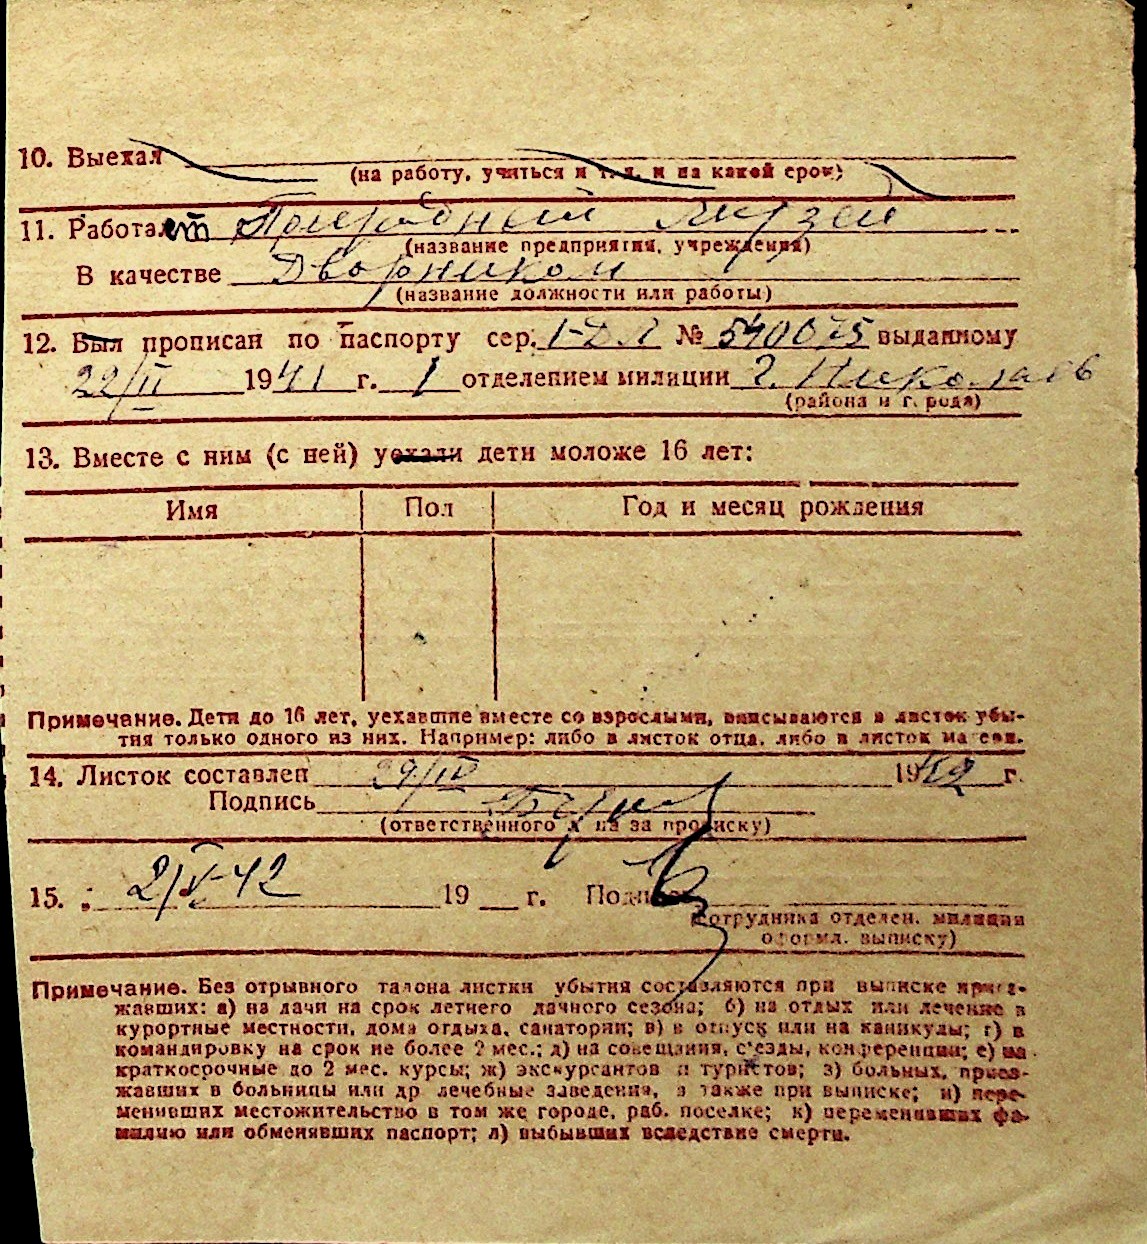 10. Выехал
(на работу, учиться и т. д. и на какой срок)
11. Работает Природный музей
(название предприятия, учреждения)
В качестве Дворником
(название должности или работы)
12. Был прописан по паспорту сер. I-ДЛ № 540675 выданному
22/II 1941 г. 1 отделением милиции г. Николаев
(района и города)
13. Вместе с ним (с ней) уехали дети моложе 16 лет:
Имя Пол Год и месяц рождения
Примечание. Дети до 16 лет, уехавшие вместе со взрослыми, вписываются в листок убы-
тия только одного из них. Например: либо в листок отца, либо в листок матери.
14. Листок составлен 29/IV 1942 г.
Подпись
(ответственного лица за прописку)
15. 2/V-42 19 г. Подпись
(сотрудника отделен. милиции
оформл. выписку)
Примечание. Без отрывного талона листки убытия составляются при выписке приез-
жавших: а) на дачи на срок летнего дачного сезона; б) на отдых или лечение в
курортные местности, дома отдыха, санатории; в) в отпуск или на каникулы; г) в
командировку на срок не более 2 мес.; д) на совещания, съезды, конференции; е) на
краткосрочные до 2 мес. курсы; ж) экскурсантов и туристов; з) больных, приез-
жавших в больницы или др лечебные заведения, а также при выписке; и) пере-
менивших местожительство в том же городе, раб. поселке; к) переменивших фа-
милию или обменявших паспорт; л) выбывших вследствие смерти.